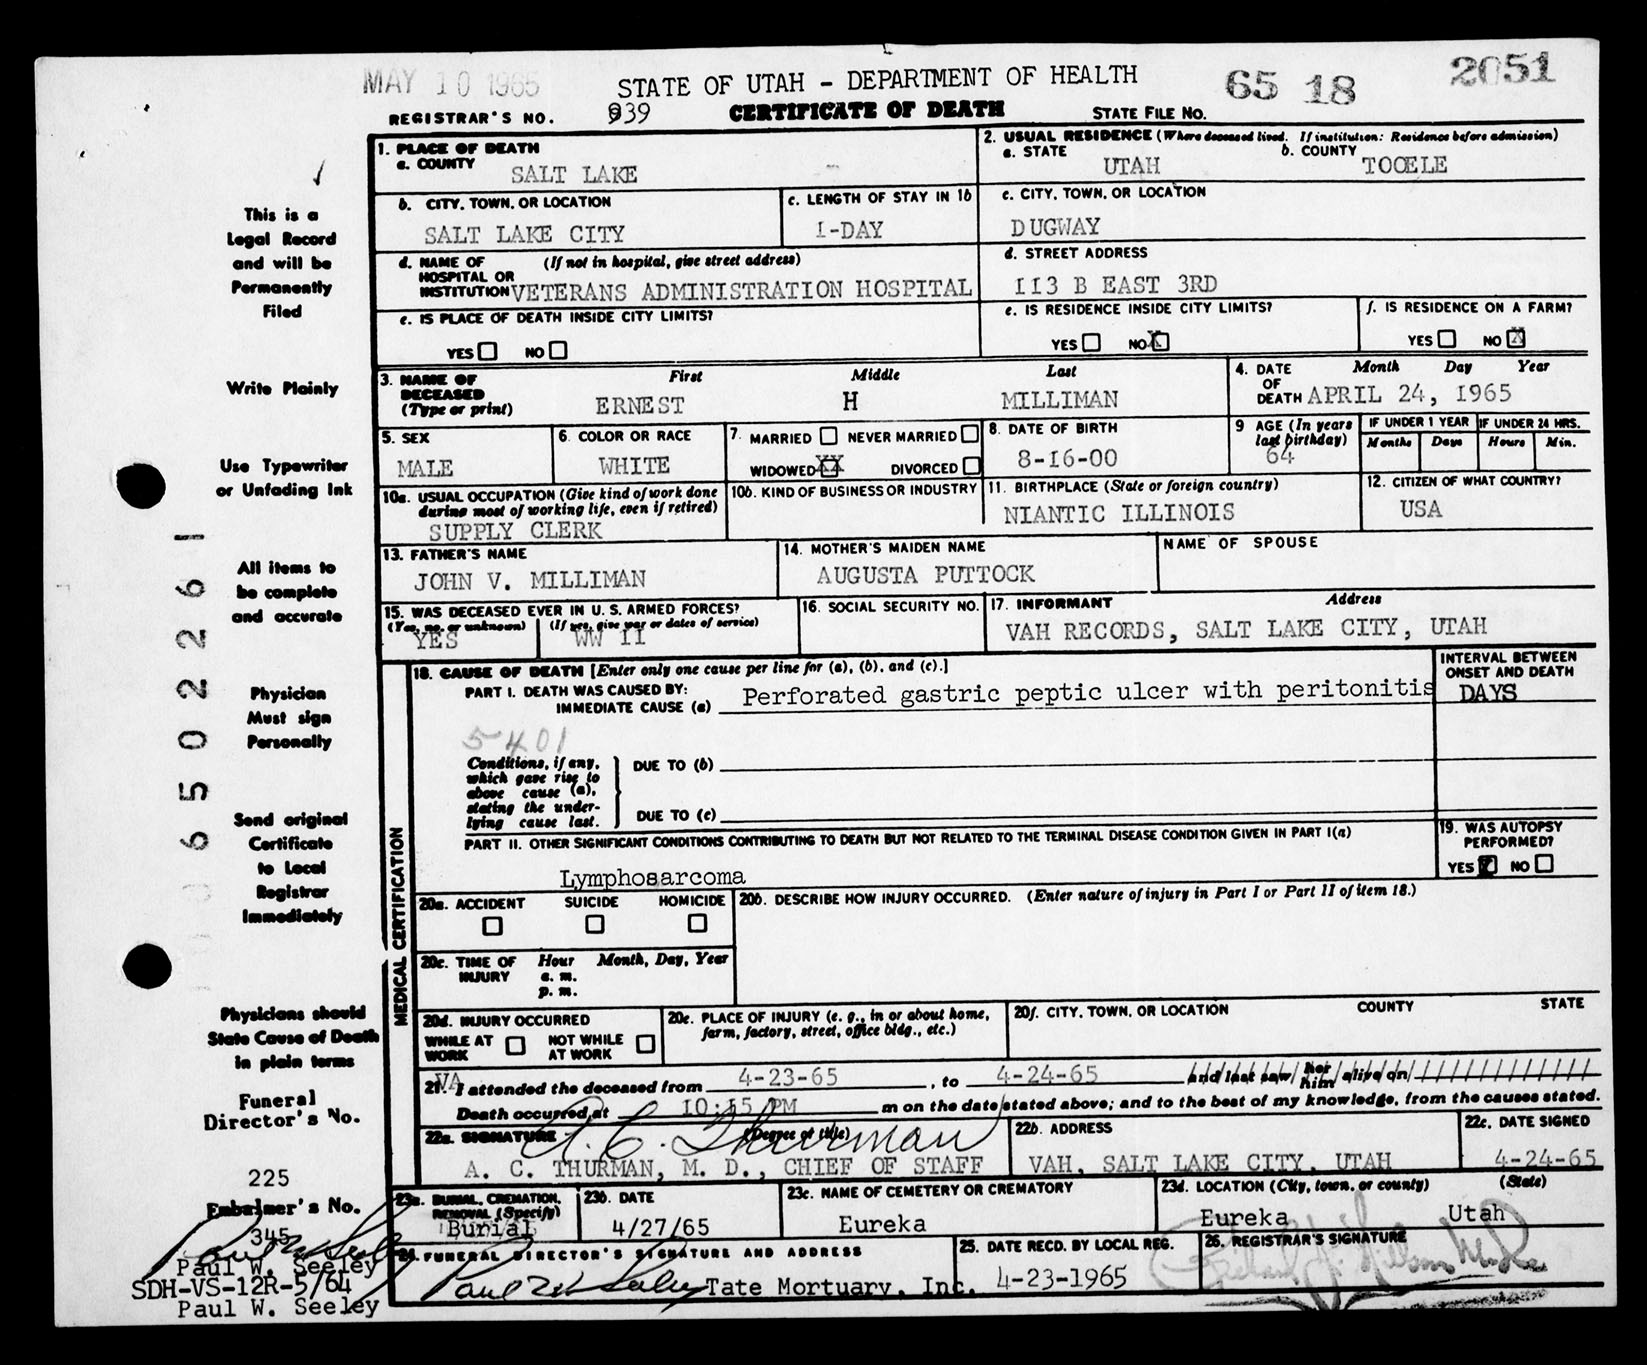 MAY 10 1965
STATE OF UTAH – DEPARTMENT OF HEALTH
65 18 2051
REGISTRAR'S NO. 939
CERTIFICATE OF DEATH
STATE FILE NO.
This is a
Legal Record
and will be
Permanently
Filed
Write Plainly
Use Typewriter
or Unfading Ink
All items to
be complete
and accurate
Physician
Must sign
Personally
Send original
Certificate
to Local
Registrar
Immediately
Physicians should
State Cause of Death
in plain terms
Funeral
Director's No.
225
Embalmer's No.
345
Paul W. Seeley
Paul W. Seeley
SDH-VS-12R-5/64
Paul W. Seeley
6 5 0 2 2 6 1
1. PLACE OF DEATH
a. COUNTY
SALT LAKE
2. USUAL RESIDENCE (Where deceased lived. If institution: Residence before admission)
a. STATE
UTAH
b. COUNTY
TOOELE
b. CITY, TOWN, OR LOCATION
SALT LAKE CITY
c. LENGTH OF STAY IN 1b
1-DAY
c. CITY, TOWN, OR LOCATION
DUGWAY
d. NAME OF HOSPITAL OR INSTITUTION
(If not in hospital, give street address)
VETERANS ADMINISTRATION HOSPITAL
d. STREET ADDRESS
113 B EAST 3RD
e. IS PLACE OF DEATH INSIDE CITY LIMITS?
YES NO
e. IS RESIDENCE INSIDE CITY LIMITS?
YES NO X
f. IS RESIDENCE ON A FARM?
YES NO X
3. NAME OF DECEASED (Type or print)
First Middle Last
ERNEST H MILLIMAN
4. DATE OF DEATH
Month Day Year
APRIL 24, 1965
5. SEX
MALE
6. COLOR OR RACE
WHITE
7. MARRIED NEVER MARRIED
WIDOWED XX DIVORCED
8. DATE OF BIRTH
8-16-00
9 AGE (In years last birthday)
64
IF UNDER 1 YEAR
Months Days
IF UNDER 24 HRS.
Hours Min.
10a. USUAL OCCUPATION (Give kind of work done during most of working life, even if retired)
SUPPLY CLERK
10b. KIND OF BUSINESS OR INDUSTRY
11. BIRTHPLACE (State or foreign country)
NIANTIC ILLINOIS
12. CITIZEN OF WHAT COUNTRY?
USA
13. FATHER'S NAME
JOHN V. MILLIMAN
14. MOTHER'S MAIDEN NAME
AUGUSTA PUTTOCK
NAME OF SPOUSE
15. WAS DECEASED EVER IN U. S. ARMED FORCES?
(Yes, no, or unknown) (If yes, give war or dates of service)
YES WW II
16. SOCIAL SECURITY NO.
17. INFORMANT Address
VAH RECORDS, SALT LAKE CITY, UTAH
MEDICAL CERTIFICATION
18. CAUSE OF DEATH [Enter only one cause per line for (a), (b), and (c).]
INTERVAL BETWEEN ONSET AND DEATH
PART I. DEATH WAS CAUSED BY:
IMMEDIATE CAUSE (a) Perforated gastric peptic ulcer with peritonitis DAYS
5401
Conditions, if any, which gave rise to above cause (a), stating the underlying cause last.
DUE TO (b)
DUE TO (c)
PART II. OTHER SIGNIFICANT CONDITIONS CONTRIBUTING TO DEATH BUT NOT RELATED TO THE TERMINAL DISEASE CONDITION GIVEN IN PART I(a)
Lymphosarcoma
19. WAS AUTOPSY PERFORMED?
YES NO
20a. ACCIDENT SUICIDE HOMICIDE
20b. DESCRIBE HOW INJURY OCCURRED. (Enter nature of injury in Part I or Part II of item 18.)
20c. TIME OF INJURY Hour Month, Day, Year
a. m.
p. m.
20d. INJURY OCCURRED
WHILE AT WORK NOT WHILE AT WORK
20e. PLACE OF INJURY (e. g., in or about home, farm, factory, street, office bldg., etc.)
20f. CITY, TOWN, OR LOCATION COUNTY STATE
21. VA I attended the deceased from 4-23-65, to 4-24-65 and last saw her him alive on
Death occurred at 10:15 PM m on the date stated above; and to the best of my knowledge, from the causes stated.
22a. SIGNATURE (Degree or title)
A. C. Thurman
A. C. THURMAN, M. D., CHIEF OF STAFF
22b. ADDRESS
VAH, SALT LAKE CITY, UTAH
22c. DATE SIGNED
4-24-65
23a. BURIAL, CREMATION, REMOVAL (Specify)
Burial
23b. DATE
4/27/65
23c. NAME OF CEMETERY OR CREMATORY
Eureka
23d. LOCATION (City, town, or county) (State)
Eureka Utah
24. FUNERAL DIRECTOR'S SIGNATURE AND ADDRESS
Paul W. Seeley Tate Mortuary, Inc.
25. DATE RECD. BY LOCAL REG.
4-23-1965
26. REGISTRAR'S SIGNATURE